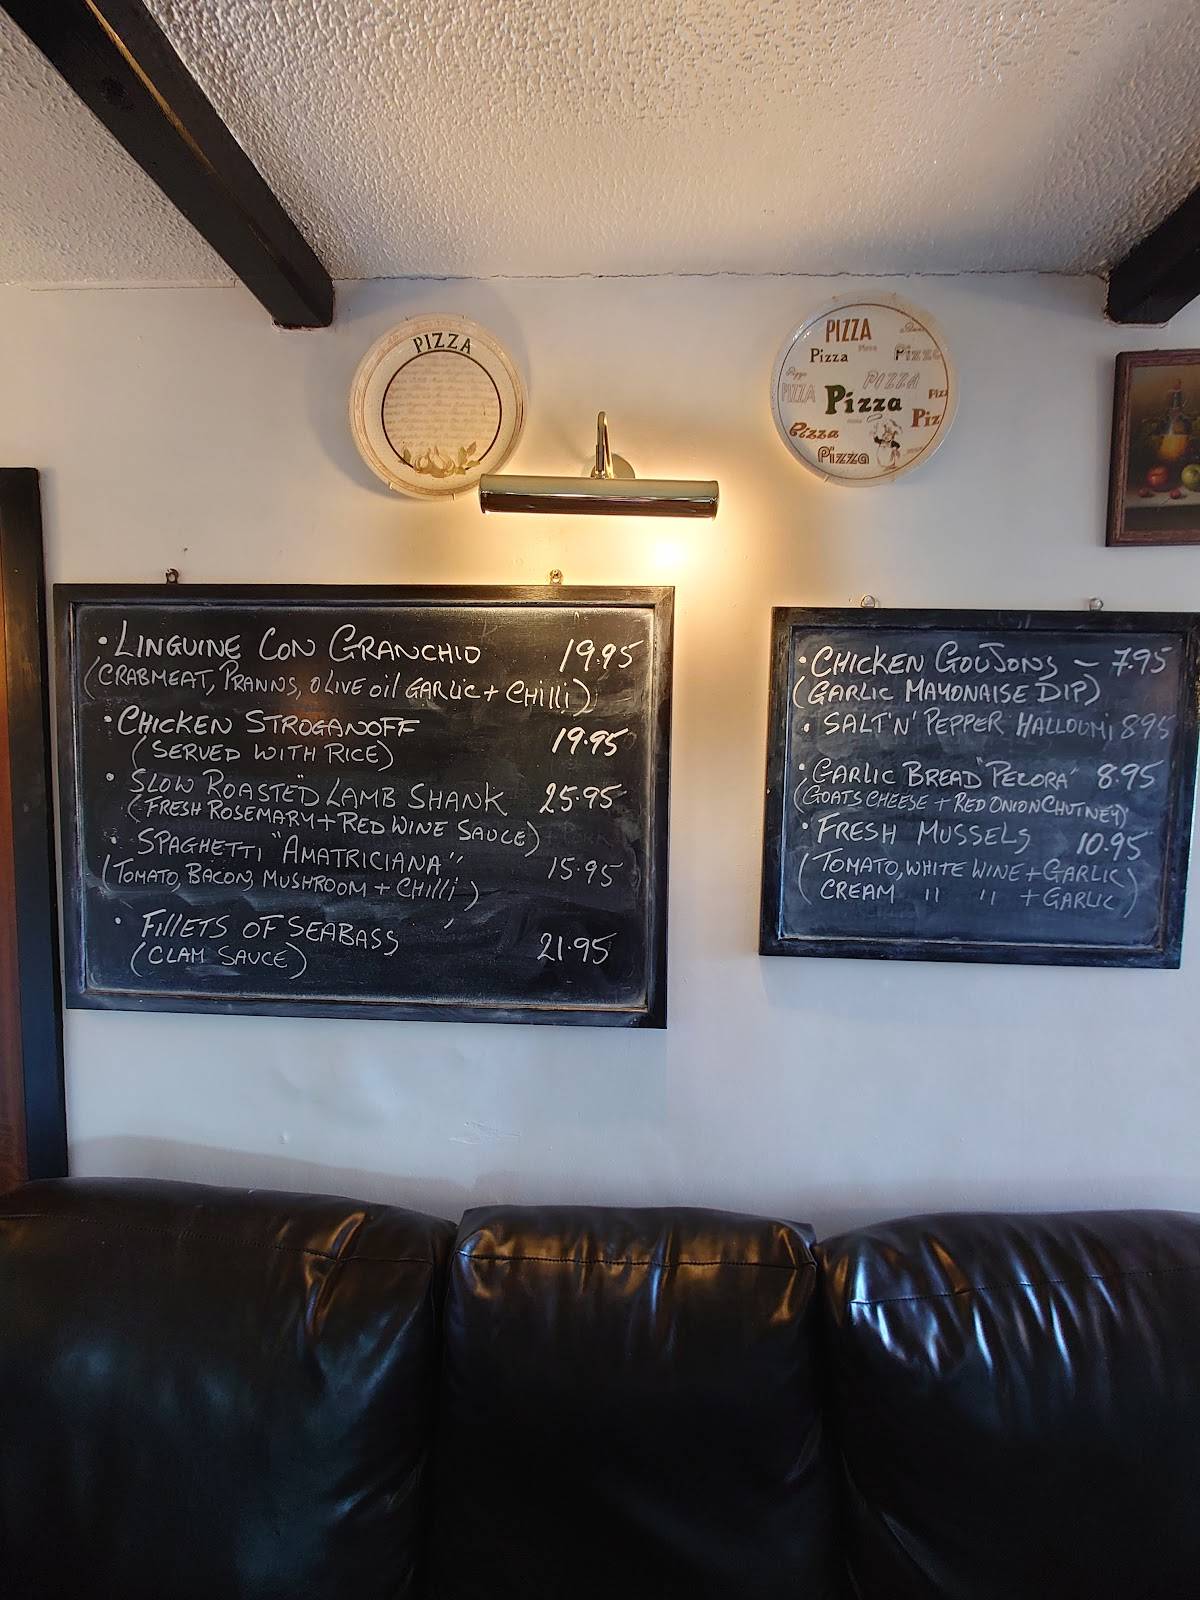 PIZZA
PIZZA
Pizza
Pizza
PIZZA
PIZZA
Pizza
Piz
Pizza
Pizza
• LINGUINE CON GRANCHIO 19.95
(CRABMEAT, PRANNS, OLIVE oil GARLIC + CHILLI)
• CHICKEN STROGANOFF 19.95
(SERVED WITH RICE)
• SLOW ROASTED" LAMB SHANK 25.95
(FRESH ROSEMARY + RED WINE SAUCE)
• SPAGHETTI "AMATRICIANA" 15.95
(TOMATO, BACON, MUSHROOM + CHILLI)
• FILLETS OF SEABASS 21.95
(CLAM SAUCE)
• CHICKEN GOUJONS - 7.95
(GARLIC MAYONAISE DIP)
• SALT 'N' PEPPER HALLOUMI 895
• GARLIC BREAD "PECORA" 8.95
(GOATS CHEESE + RED ONION CHUTNEY)
• FRESH MUSSELS 10.95
(TOMATO, WHITE WINE + GARLIC)
CREAM " " + GARLIC)